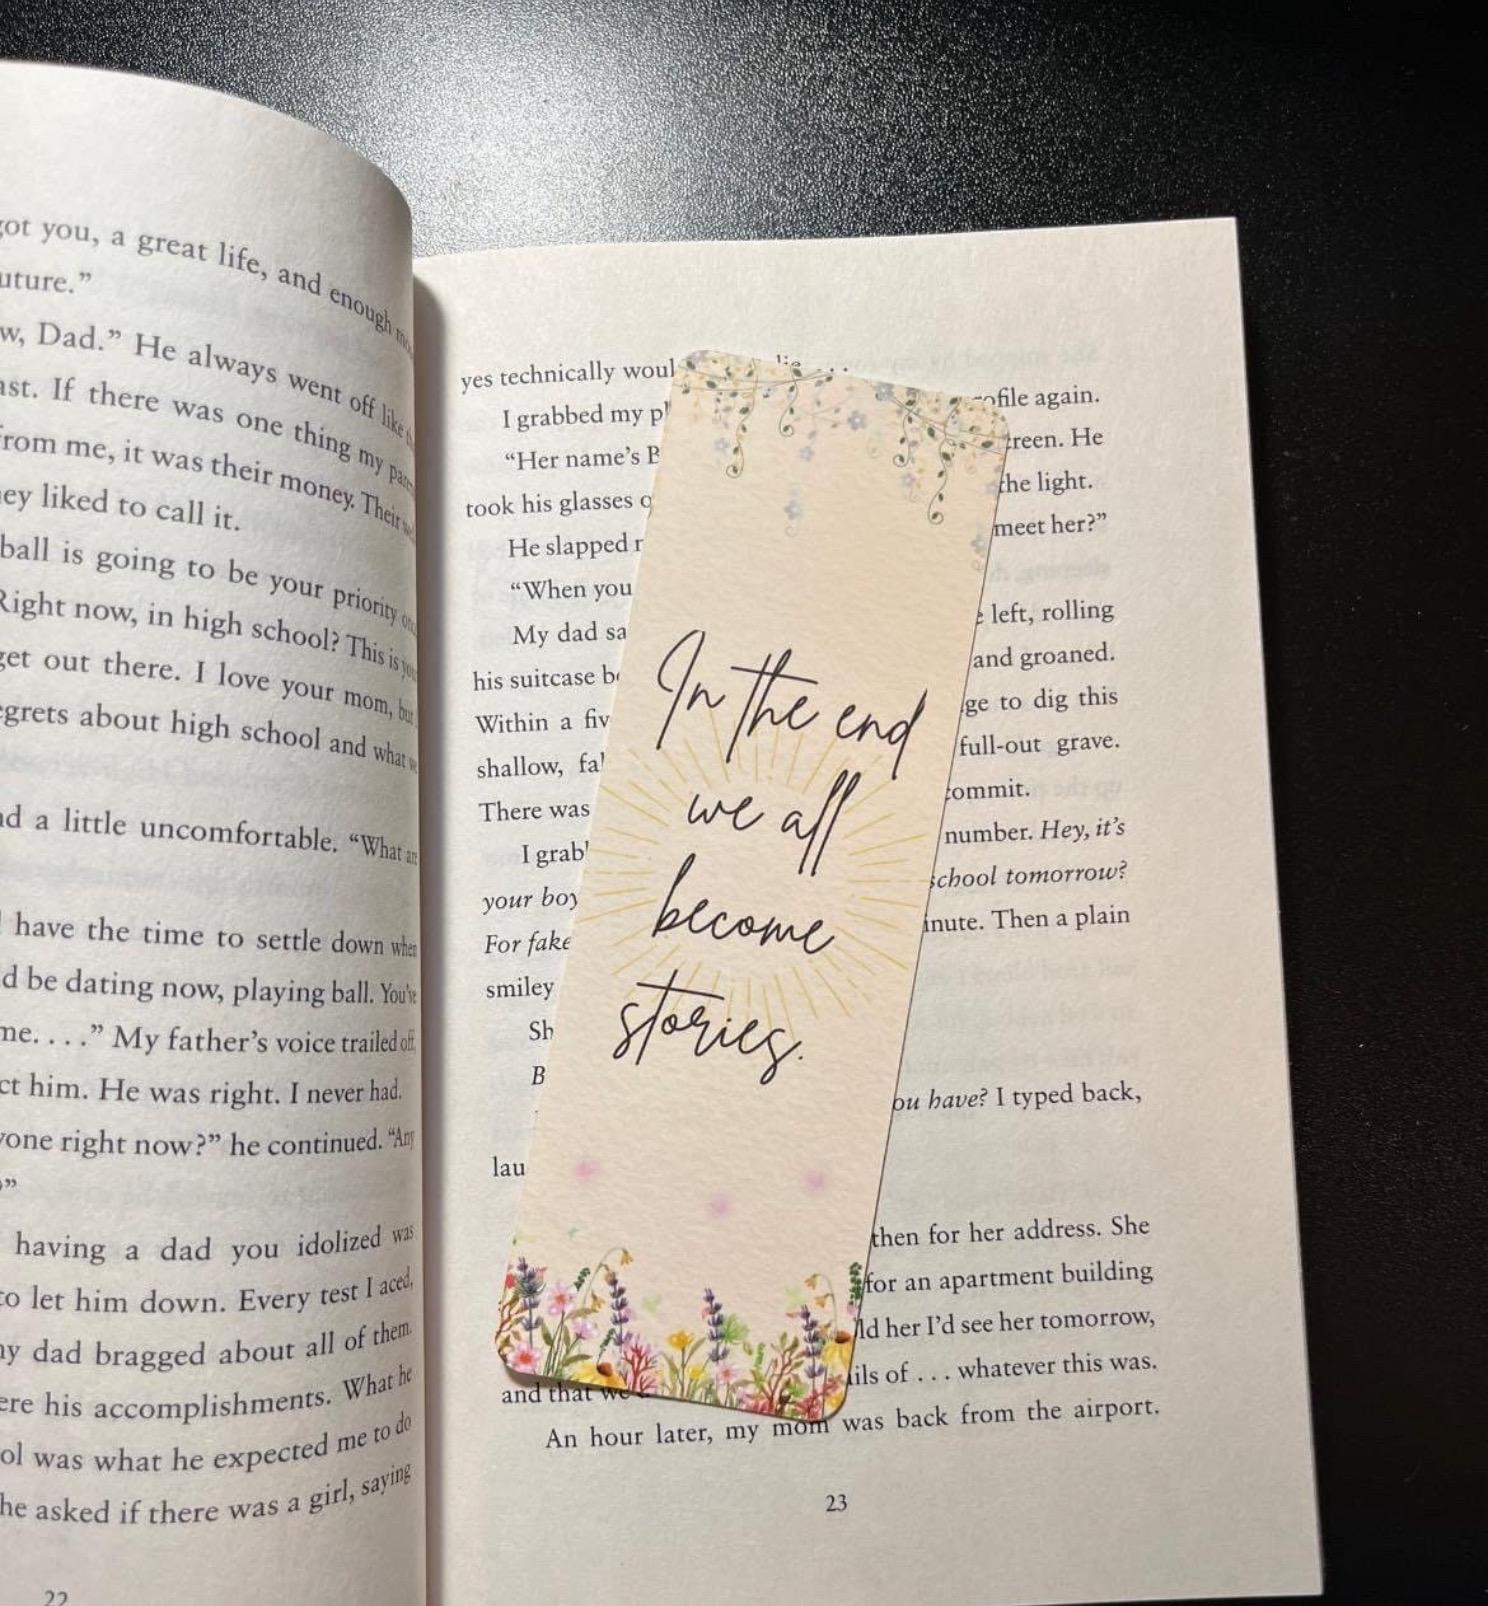 got you, a great life, and enough
uture.”
w, Dad.” He always went off like
ast. If there was one thing my
from me, it was their money. Their
ey liked to call it.
ball is going to be your priority
Right now, in high school? This is
get out there. I love your mom, but
egrets about high school and what
nd a little uncomfortable. “What are
have the time to settle down when
d be dating now, playing ball. You’ve
me. . . .” My father’s voice trailed off.
ct him. He was right. I never had.
yone right now?” he continued. “Any
?”
having a dad you idolized was
to let him down. Every test I aced,
my dad bragged about all of them.
ere his accomplishments. What he
ol was what he expected me to do
he asked if there was a girl, saying
22
yes technically woul lie . . .
I grabbed my p ofile again.
“Her name’s B creen. He
took his glasses o the light.
He slapped meet her?”
“When you
My dad sa left, rolling
his suitcase b and groaned.
Within a fiv ge to dig this
shallow, fa full-out grave.
There was commit.
I grab number. Hey, it’s
your boy school tomorrow?
For fake inute. Then a plain
smiley
Sh
B
ou have? I typed back,
lau
then for her address. She
for an apartment building
ld her I’d see her tomorrow,
ils of . . . whatever this was.
and that we
An hour later, my mom was back from the airport.
23
In the end
we all
become
stories.